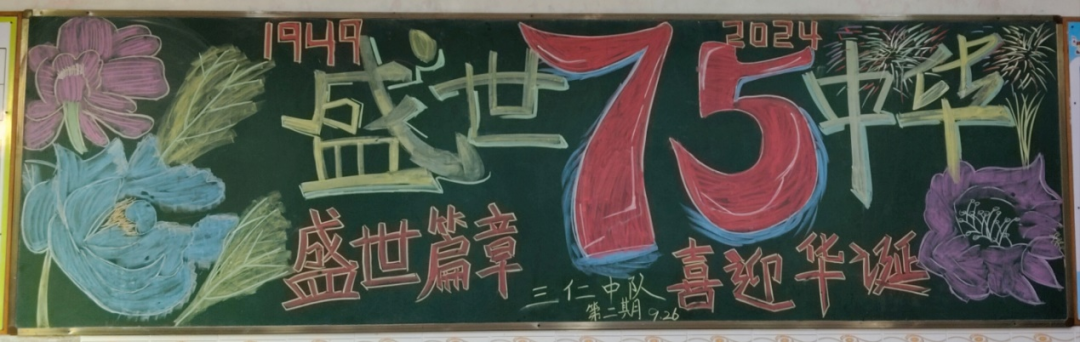 1949 2024
盛世75中华
盛世篇章 喜迎华诞
三仁中队
第二期 9.26